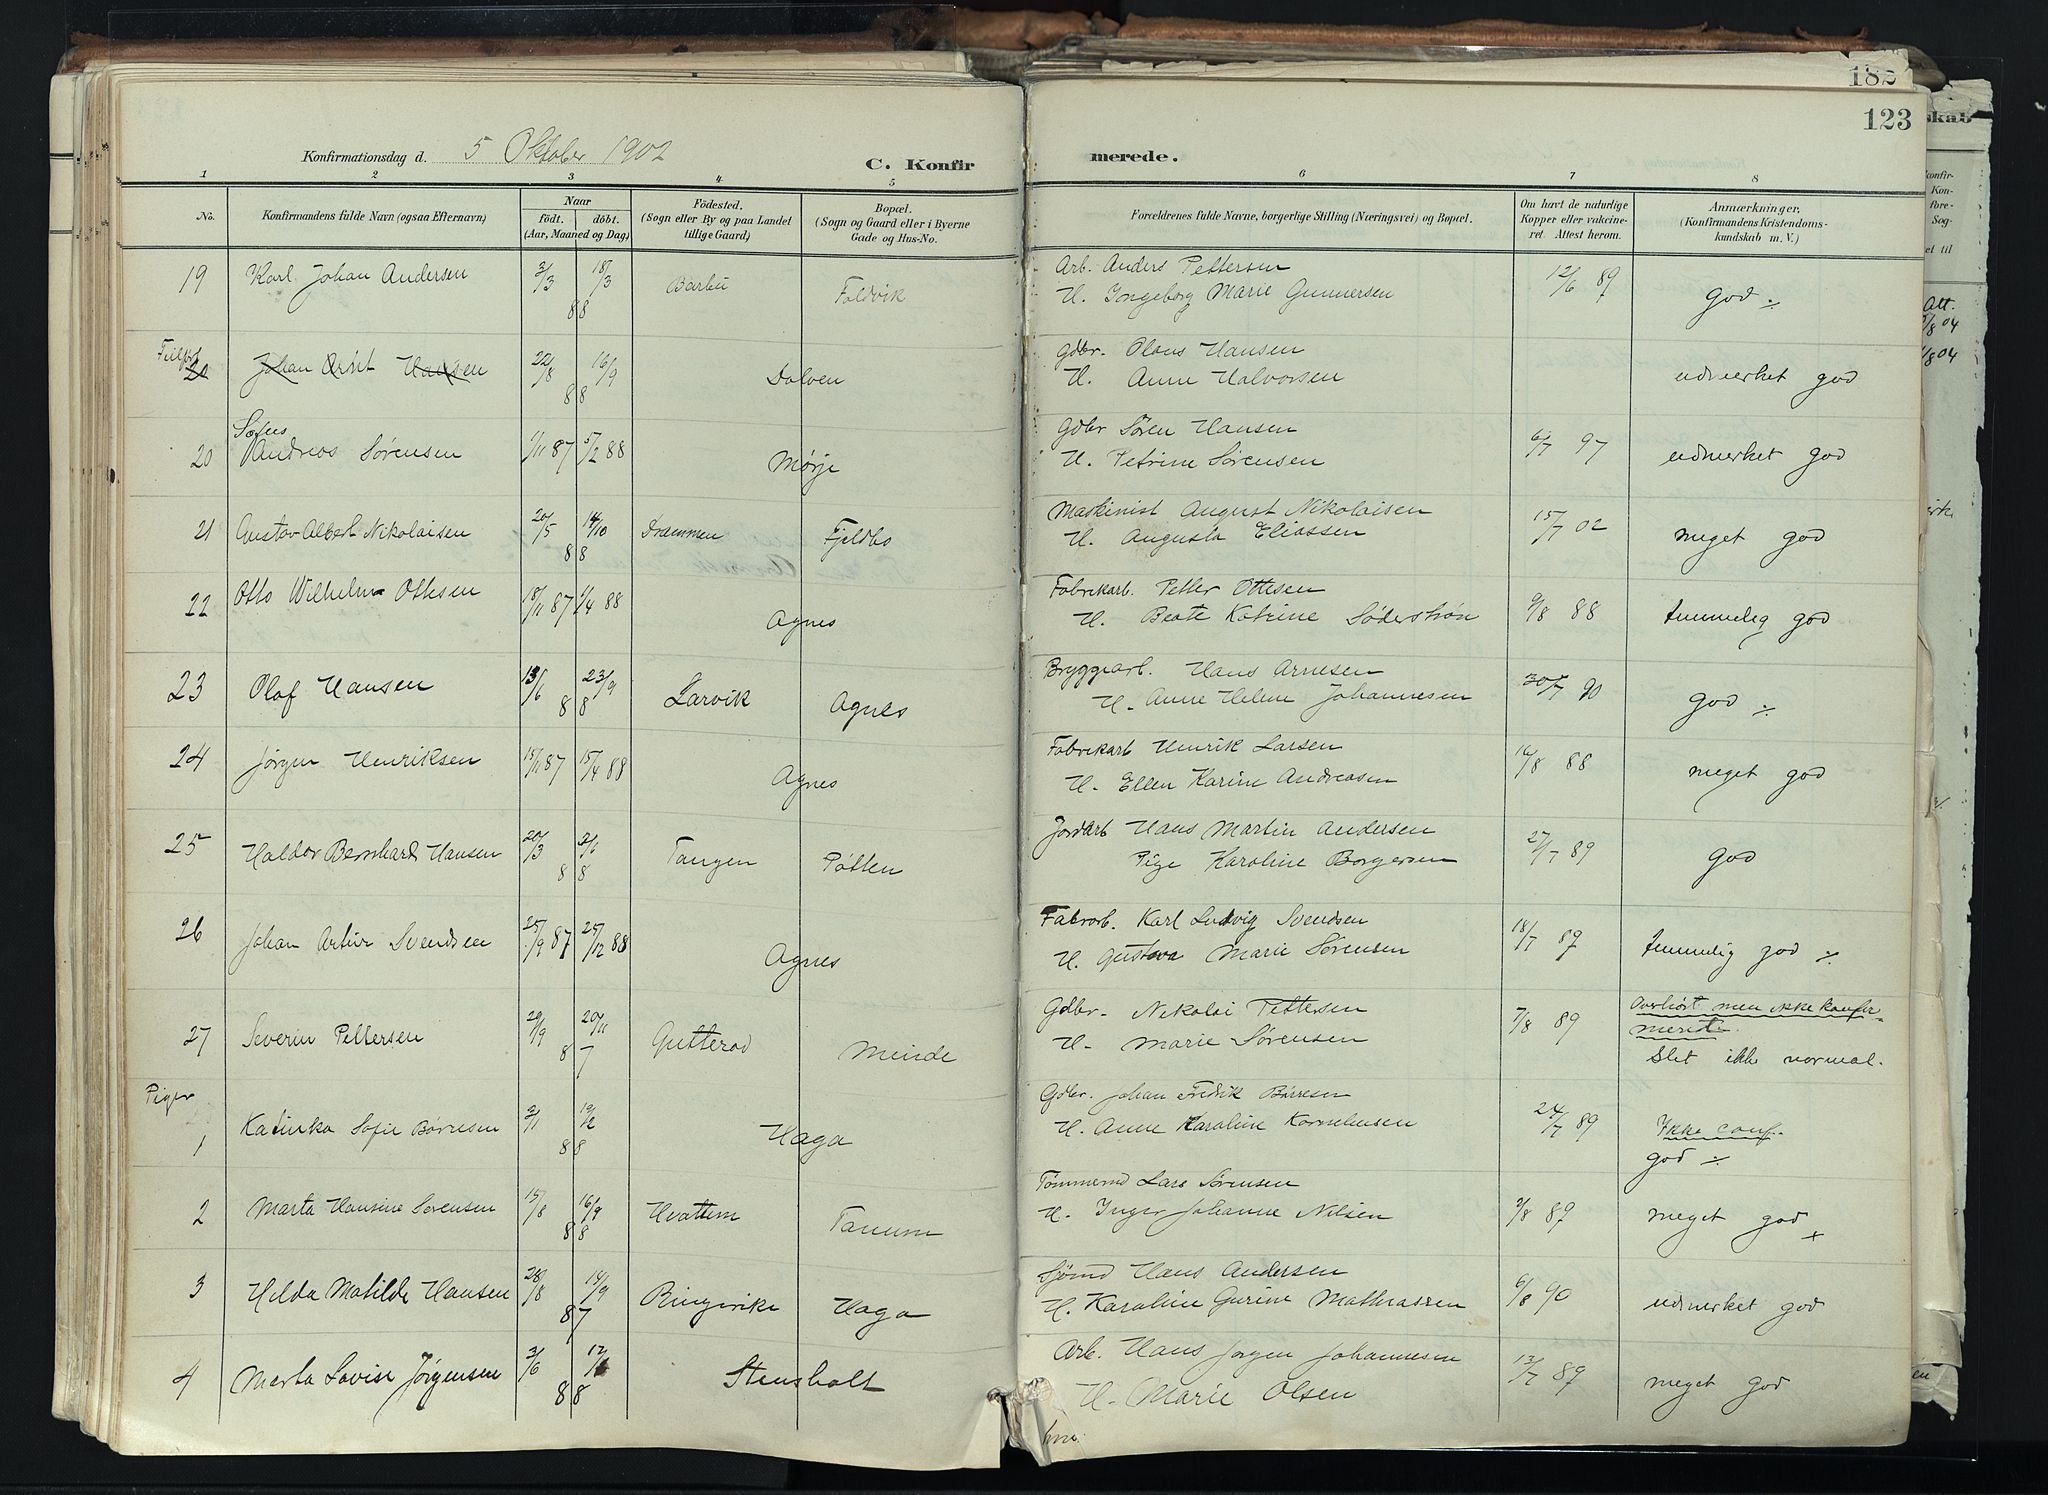 182
123
Konfirmationsdag d. 5 Oktober 1902
C. Konfir merede.
1 2 3 4 5 6 7 8
No. Konfirmandens fulde Navn (ogsaa Efternavn) Naar födt. döbt. (Aar, Maaned og Dag) Födested. (Sogn eller By og paa Landet tillige Gaard) Bopæl. (Sogn og Gaard eller i Byerne Gade og Hus-No. Forældrenes fulde Navne, borgerlige Stilling (Næringsvei) og Bopæl. Om havt de naturlige Kopper eller vakcineret. Attest herom. Anmærkninger. (Konfirmandens Kristendomskundskab m. V.)
19 Karl Johan Andersen 3/3 18/3 88 Barbu Foldvik Arb. Anders Pettersen 12/6 89 god ·/·
H. Ingeborg Marie Gunnersen
20 Johan Hansen 22/8 16/9 88 Dolven Gdbr. Olaus Hansen udmerket god
H. Anne Halvorsen
20 Sofus Andreas Sørensen 1/11 87 5/2 88 Mørje Gdbr Søren Hansen 6/7 97 udmerket god
H. Petrine Sørensen
21 Gustav Albert Nikolaisen 20/5 14/10 88 Drammen Fjeldbo Maskinist August Nikolaisen 15/7 02 meget god
H. Augusta Eliassen
22 Otto Wilhelm Ottesen 18/11 87 1/4 88 Agnes Fabrikarb. Petter Ottesen 9/8 88 temmelig god
H. Beate Katrine Söderstrøn
23 Olaf Hansen 13/6 23/9 88 Larvik Agnes Bryggearb. Hans Arnesen 30/7 90 god ·/·
H. Anne Helene Johannesen
24 Jørgen Henriksen 15/11 87 15/4 88 Agnes Fabrikarb Henrik Larsen 16/8 88 meget god
H. Ellen Karine Andreasen
25 Haldor Bernhard Hansen 20/3 88 Tangen Pøtten Jordarb Hans Martin Andersen 27/7 89 god
Pige Karoline Borgersen
26 Johan Artur Svendsen 25/9 87 25/12 88 Agnes Fabrarb. Karl Ludvig Svendsen 18/7 89 temmelig god ·/·
H. Gustava Marie Sørensen
27 Severin Pettersen 29/9 20/11 87 Gutterød Minde Gdbr. Nikolai Pettersen 7/8 89 Overhørt men ikke konfirmeret.
H. Marie Sørensen Slet ikke normal.
Piger
1 Katinka Sofie Børresen 3/1 19/2 88 Haga Gdbr. Johan Fredrik Børresen 24/7 89 Ikke conf.
H. Anne Karoline Korneliussen god ·/·
2 Marta Hansine Sørensen 15/8 16/9 88 Hvattum Tanum Tømmermd Lars Sørensen 3/8 89 meget god +
H. Inger Johanne Nilsen
3 Hilda Matilde Hansen 28/8 14/9 87 Ringerike Haga Sjømd Hans Andersen 6/8 90 udmerket god
H. Karoline Gurine Mathiassen
4 Marta Lovise Jørgensen 3/6 88 Stensholt Arb. Hans Jørgen Johannesen 13/7 89 meget god
H. Marie Olsen